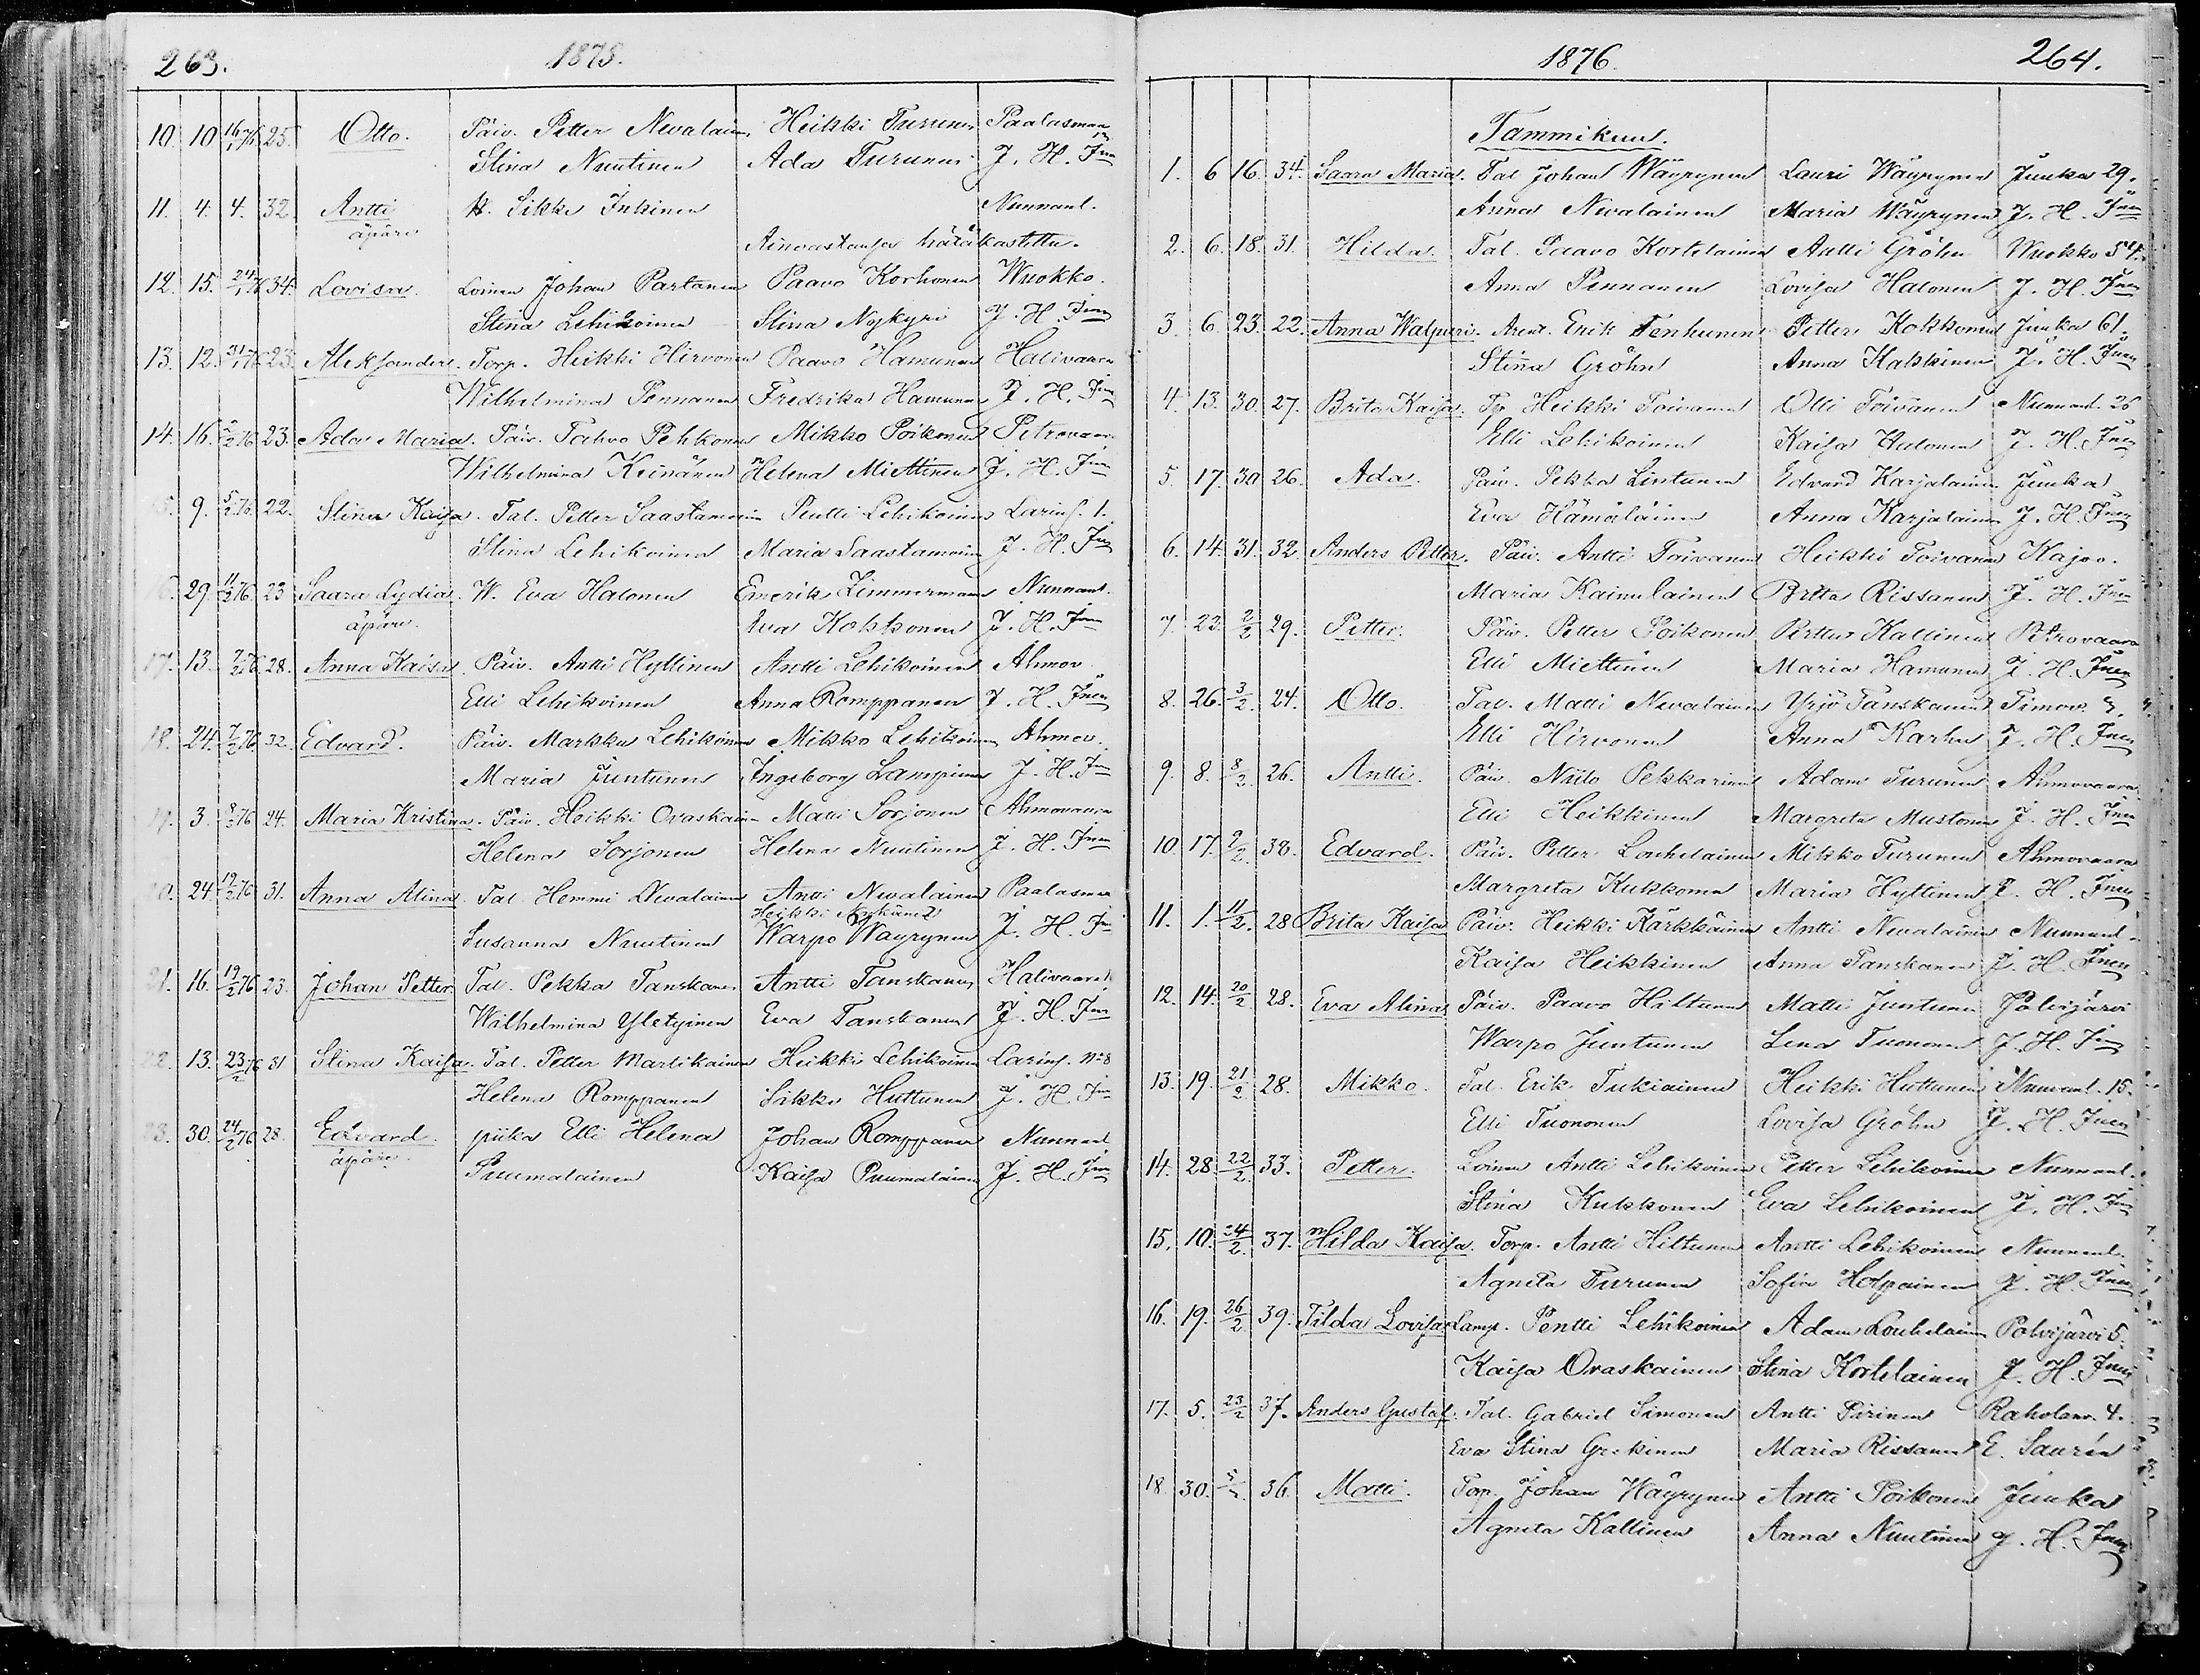 263. 1875.
10. 10 16/1 76 25. Otto. Päiv. Petter Nevalain Heikki Turunen Paalasmaa
Stina Nuutinen Ada Turunen J. H. Inen
11. 4. 4. 32 Antti Sikke Inkinen Nunnanl.
äpäre Ainoastansa hätäkastettu.
12. 15. 24/1 76 34. Lovisa. Loinen Johan Partanen Paavo Korhonen Wuokko.
Stina Lehikoinen Stina Nykyri J. H. Inen
13. 12. 31/1 76 23. Aleksander. Torp. Heikki Hirvonen Paavo Hamunen Halivaara
Wilhelmina Pennanen Fredrika Hamunen J. H. Inen
14. 16. 76 23. Ada Maria. Päiv. Tahvo Pehkonen Mikko Poikonen Petrovaar.
Wilhelmina Keinänen Helena Miettinen J. H. Inen
9. 5/2 76. 22. Stina Kaisa. Tal. Petter Saastamoin Pentti Lehikoinen Larins. 1.
Stina Lehikoinen Maria Saastamoin J. H. Inen
29. 11/2 76. 23 Saara Lydia. W. Eva Halonen Emerik Zimmermann Nunnanl.
äpäre. Eva Kokkonen J. H. Inen
17. 13. 7/2 76 28. Anna Kaisa. Päiv. Antti Hyttinen Antti Lehikoinen Ahmov.
Elli Lehikoinen Anna Romppanen J. H. Inen
18. 24. 7/2 76 32. Edvard. Päiv. Markku Lehikoinen Mikko Lehikoinen Ahmov.
Maria Juntunen Ingeborg Lampinen J. H. Inen
3. 76 24. Maria Kristina. Päiv. Heikki Ovaskain Matti Sorjonen Ahmovaara
Helena Sorjonen Helena Nuutinen J. H. Inen
20. 24. 12/2 76 31. Anna Alina. Tal. Hemmi Nevalainen Antti Nevalainen Paalasmaa
Heikki
Susanna Nuutinen Warpo Wäyrynen J. H. Inen
21. 16. 19/2 76 23. Johan Petter. Tal. Pekka Tanskanen Antti Tanskanen Halivaara
Wilhelmina Yletyinen Eva Tanskanen J. H. Inen
22. 13. 23/2 76 31 Stina Kaisa. Tal. Petter Martikainen Heikki Lehikoinen Larins. No 8
Helena Romppanen Sikke Huttunen J. H. Inen
23. 30. 24/2 76 28. Edvard. piika Elli Helena Johan Romppanen Nunnanl
äpäre. Puumalainen Kaisa Puumalainen J. H. Inen
1876. 264.
Tammikuu.
1. 6 16. 34. Saara Maria. Tal. Johan Wäyrynen Lauri Wäyrynen Juuka 29.
Anna Nevalainen Maria Wäyrynen J. H. Inen
2. 6. 18. 31. Hilda. Tal. Paavo Kortelainen Antti Gröhn Wuokko 54.
Anna Pennanen Lovisa Halonen J. H. Inen
3. 6. 23. 22. Anna Walpuri. Arent. Erik Tenhunen Petter Kokkonen Juuka 61.
Stina Gröhn Anna Kakkinen J. H. Inen
4. 13. 30. 27. Brita Kaisa. Tp. Heikki Toivanen Olli Toivanen Nunnanl. 26
Elli Lehikoinen Kaisa Halonen J. H. Inen
5. 17. 30 26. Ada. Päiv. Pekka Lintunen Edvard Karjalainen Juuka
Eva Hämäläinen Anna Karjalainen J. H. Inen
6. 14. 31. 32. Anders Petter. Päiv. Antti Toivanen Heikki Toivanen Kajoo.
Maria Kainulainen Britta Rissanen J. H. Inen
7. 22. 2/2 29. Petter. Päiv. Petter Poikonen Perttu Kallinen Petrovaara
Elli Miettinen Maria Hamunen J. H. Inen
8. 26. 3/2. 24. Otto. Tal. Matti Nevalainen Yrjö Tanskanen Timov. 3.
Elli Hirvonen Anna Karhu J. H. Inen
9. 8. 8/2. 26. Antti. Päiv. Niilo Pekkarinen Adam Turunen Ahmovaara
Elli Heikkinen Margreta Mustonen J. H. Inen
10. 17. 9/2. 38. Edvard. Päiv. Petter Louhelainen Mikko Turunen Ahmovaara
Margreta Kukkonen Maria Hyttinen J. H. Inen
11. 1. 11/2. 28 Brita Kaisa Päiv. Heikki Kärkkäinen Antti Nevalainen Nunnanl.
Kaisa Heikkinen Anna Tanskanen J. H. Inen
12. 14. 20/2 28. Eva Alina Päiv. Paavo Hiltunen Matti Juntunen Polvijärvi
Warpo Juntunen Lena Tuononen J. H. Inen
13. 19. 21/2 28. Mikko. Tal. Erik Tukiainen Heikki Huttunen Nunnanl. 15.
Elli Tuononen Lovisa Gröhn J. H. Inen
14. 28. 22/2. 33. Petter. Loinen Antti Lehikoinen Petter Lehikoinen Nunnanl.
Stina Kukkonen Eva Lehikoinen J. H. Inen
15. 10. 24/2. 37. Hilda Kaisa. Torp. Antti Hiltunen Antti Lehikoinen Nunnanl.
Agneta Turunen Sofia Hoffrainen J. H. Inen
16. 19. 26/2 39. Tilda Lovisa Lamp. Pentti Lehikoinen Adam Louhelainen Polvijärvi 5.
Kaisa Ovaskainen Stina Kortelainen J. H. Inen
17. 5. 23/2 37. Anders Gustaf. Tal. Gabriel Simonen Antti Piirinen Raholanv. 4.
Eva Stina Maria Rissanen E. Saurén
18. 30. 36. Matti. Torp. Johan Wäyrynen Antti Poikonen Juuka
Agneta Kallinen Anna Nuutinen J. H. Inen